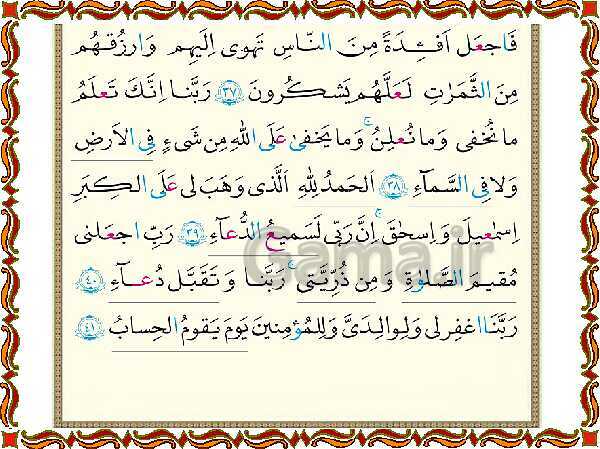 فَاجعَل اَفـِٔدَةً مِنَ النّاسِ تَهوى اِلَيهِم وَارزُقهُم
مِنَ الثَّمَرٰتِ لَعَلَّهُم يَشكُرونَ ﴿٣٧﴾ رَبَّنا اِنَّكَ تَعلَمُ
ما نُخفى وَما نُعلِنُ ۗ وَما يَخفىٰ عَلَى اللّٰهِ مِن شَىءٍ فِى الاَرضِ
وَلا فِى السَّمآءِ ﴿٣٨﴾ اَلحَمدُ لِلّٰهِ الَّذى وَهَبَ لى عَلَى الكِبَرِ
اِسمٰعيلَ وَ اِسحٰقَ ۚ اِنَّ رَبّى لَسَميعُ الدُّعآءِ ﴿٣٩﴾ رَبِّ اجعَلنى
مُقيمَ الصَّلوٰةِ وَ مِن ذُرِّيَّتى ۚ رَبَّنا وَ تَقَبَّل دُعآءِ ﴿٤٠﴾
رَبَّنَا اغفِر لى وَ لِوالِدَىَّ وَ لِلمُؤمِنينَ يَومَ يَقومُ الحِسابُ ﴿٤١﴾
Gama.ir